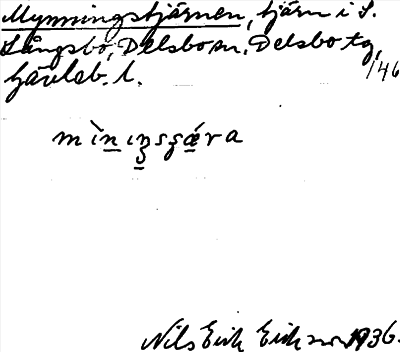 Mynningstjärnen, tjärn i S.
Långsbo, Delsbo sn. Delsbo tg,
Gävleb. l. 1146
Nils Erik Eriksson 1936.